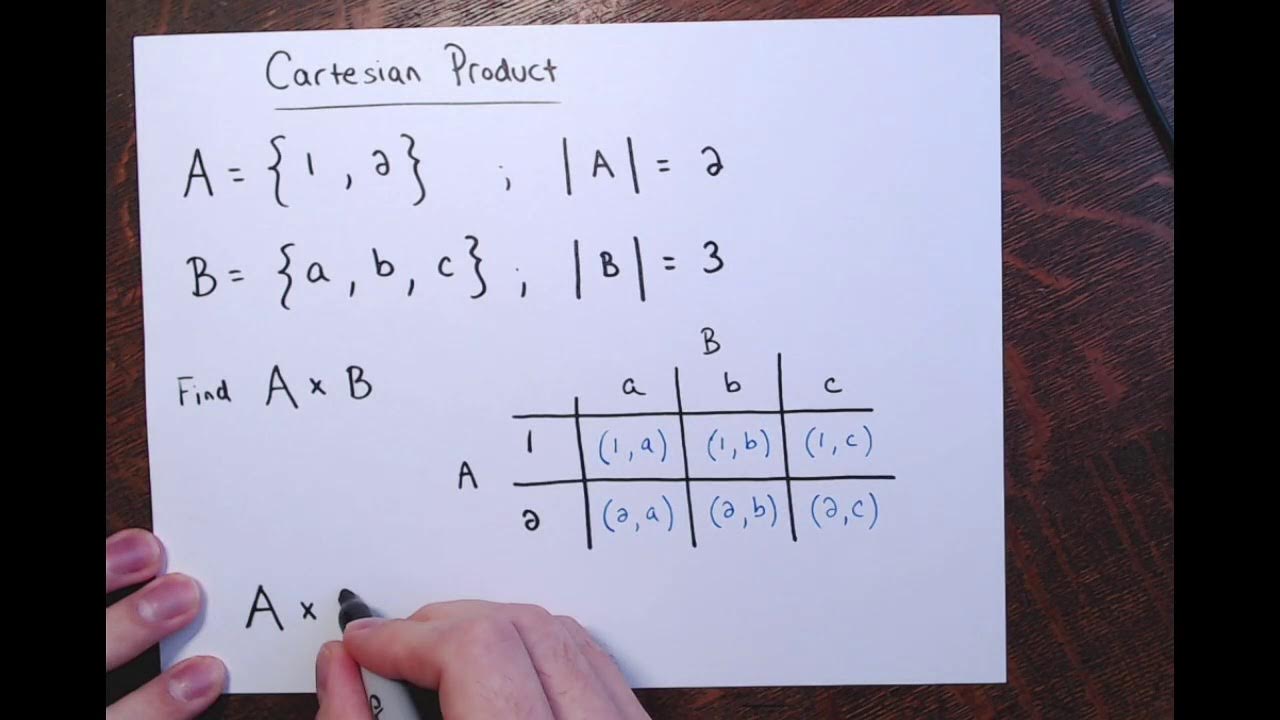 Cartesian Product
A = {1, 2} ; |A| = 2
B = {a, b, c} ; |B| = 3
Find A × B
B
a b c
1 (1, a) (1, b) (1, c)
A
2 (2, a) (2, b) (2, c)
A ×